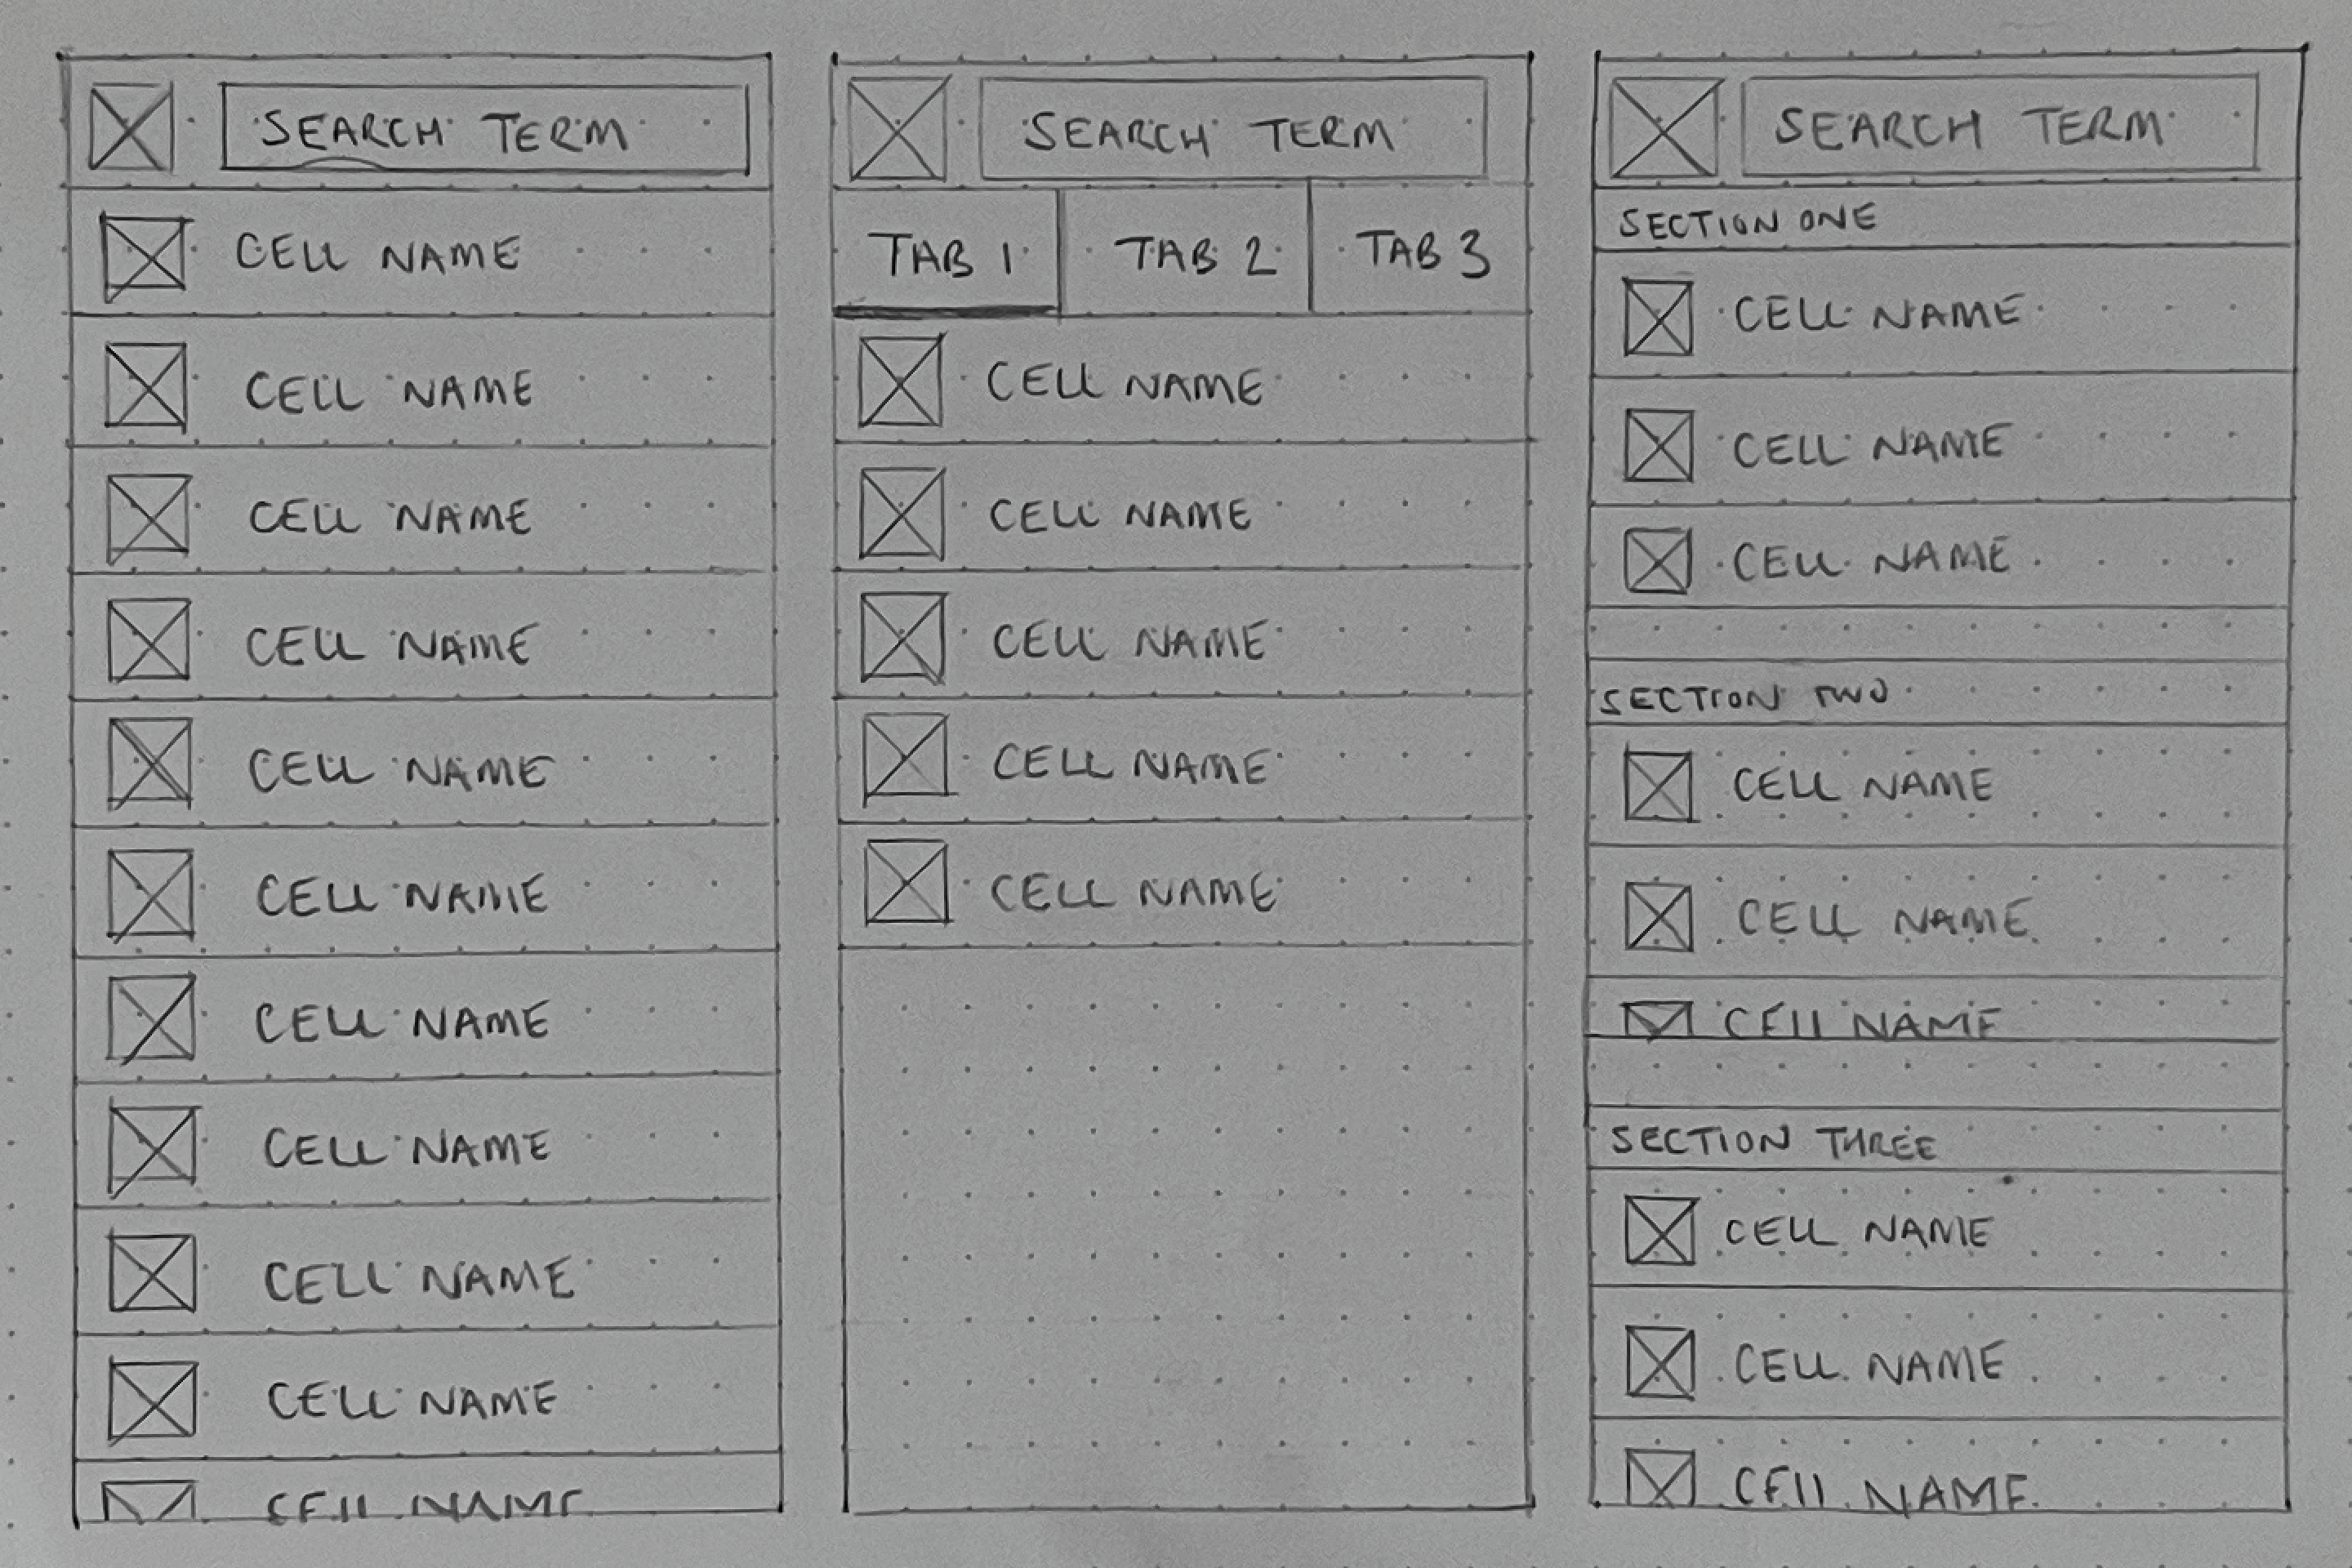 SEARCH TERM
CELL NAME
CELL NAME
CELL NAME
CELL NAME
CELL NAME
CELL NAME
CELL NAME
CELL NAME
CELL NAME
CELL NAME
CELL NAME
SEARCH TERM
TAB 1
TAB 2
TAB 3
CELL NAME
CELL NAME
CELL NAME
CELL NAME
CELL NAME
SEARCH TERM
SECTION ONE
CELL NAME
CELL NAME
CELL NAME
SECTION TWO
CELL NAME
CELL NAME
CELL NAME
SECTION THREE
CELL NAME
CELL NAME
CELL NAME